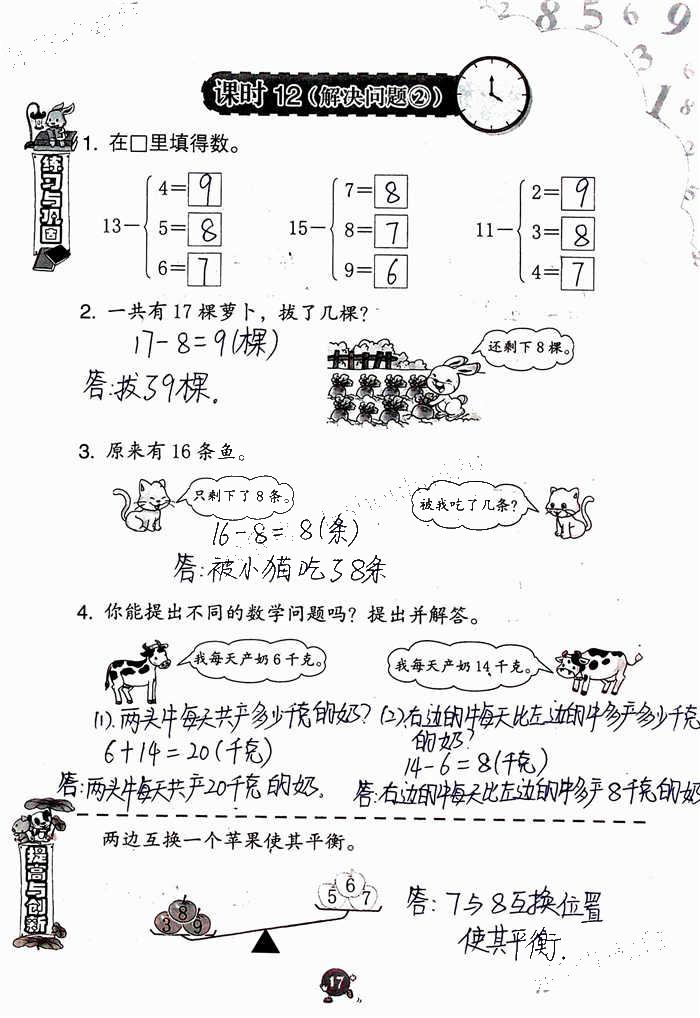 8 5 6 9
3
1 8
2
5
课时 12（解决问题②）
练习与巩固
1. 在□里填得数。
13－ 4＝9 15－ 7＝8 11－ 2＝9
5＝8 8＝7 3＝8
6＝7 9＝6 4＝7
2. 一共有 17 棵萝卜，拔了几棵？
17-8=9(棵)
还剩下 8 棵。
答:拔了9棵.
3. 原来有 16 条鱼。
只剩下了 8 条。
被我吃了几条？
16-8=8(条)
答:被小猫吃了8条
4. 你能提出不同的数学问题吗？提出并解答。
我每天产奶 6 千克。
我每天产奶 14 千克。
(1).两头牛每天共产多少千克的奶?
6+14=20(千克)
答:两头牛每天共产20千克的奶.
(2).右边的牛每天比左边的牛多产多少千克
的奶?
14-6=8(千克)
答:右边的牛每天比左边的牛多产8千克的奶
提高与创新
两边互换一个苹果使其平衡。
3 8 9
5 6 7
答:7与8互换位置
使其平衡.
17